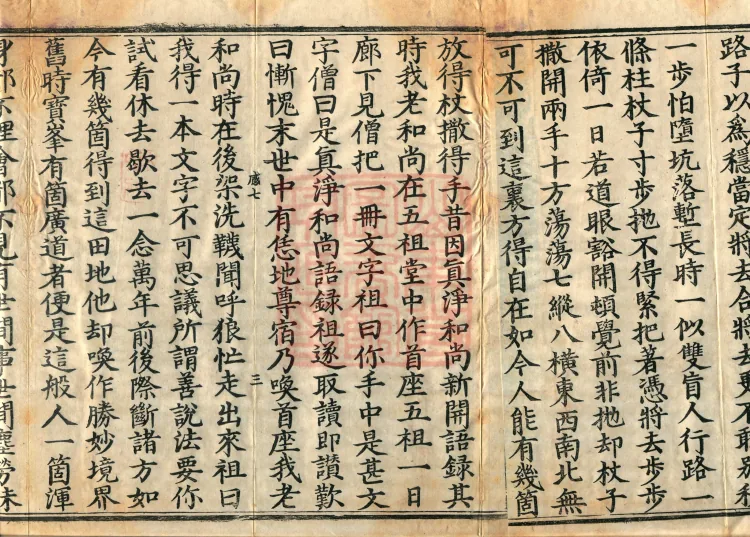 路子以爲穩當定將去合將去更不敢
一步怕墮坑落塹長時一似雙盲人行路一
條柱杖子寸步抛不得緊把著憑將去步步
依倚一日若道眼豁開頓覺前非抛却杖子
撒開兩手十方蕩蕩七縱八橫東西南北無
可不可到這裏方得自在如今人能有幾箇
放得杖撒得手昔因眞淨和尚新開語録其
時我老和尚在五祖堂中作首座五祖一日
廊下見僧把一冊文字祖曰你手中是甚文
字僧曰是眞淨和尚語録祖遂取讀即讚歎
曰慚愧末世中有恁地尊宿乃喚首座我老
感七 三
和尚時在後架洗韈聞呼狼忙走出來祖曰
我得一本文字不可思議所謂善說法要你
試看休去歇去一念萬年前後際斷諸方如
今有幾箇得到這田地他却喚作勝妙境界
舊時寶峯有箇廣道者便是這般人一箇渾
身都不理會都不見有世間事世間塵勞昧